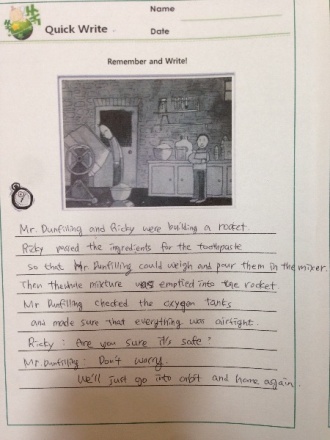 Name
Quick Write
Date
Remember and Write!
9
Mr. Dunfilling and Ricky were building a rocket.
Ricky passed the ingredients for the toothpaste
so that Mr Dunfilling could weigh and pour them in the mixer.
Then the mixture was emptied into the rocket
Mr Dunfilling checked the oxygen tanks
and made sure that everything was airtight.
Ricky : Are you sure it's safe?
Mr. Dunfilling : Don't worry.
We'll just go into orbit and home again.